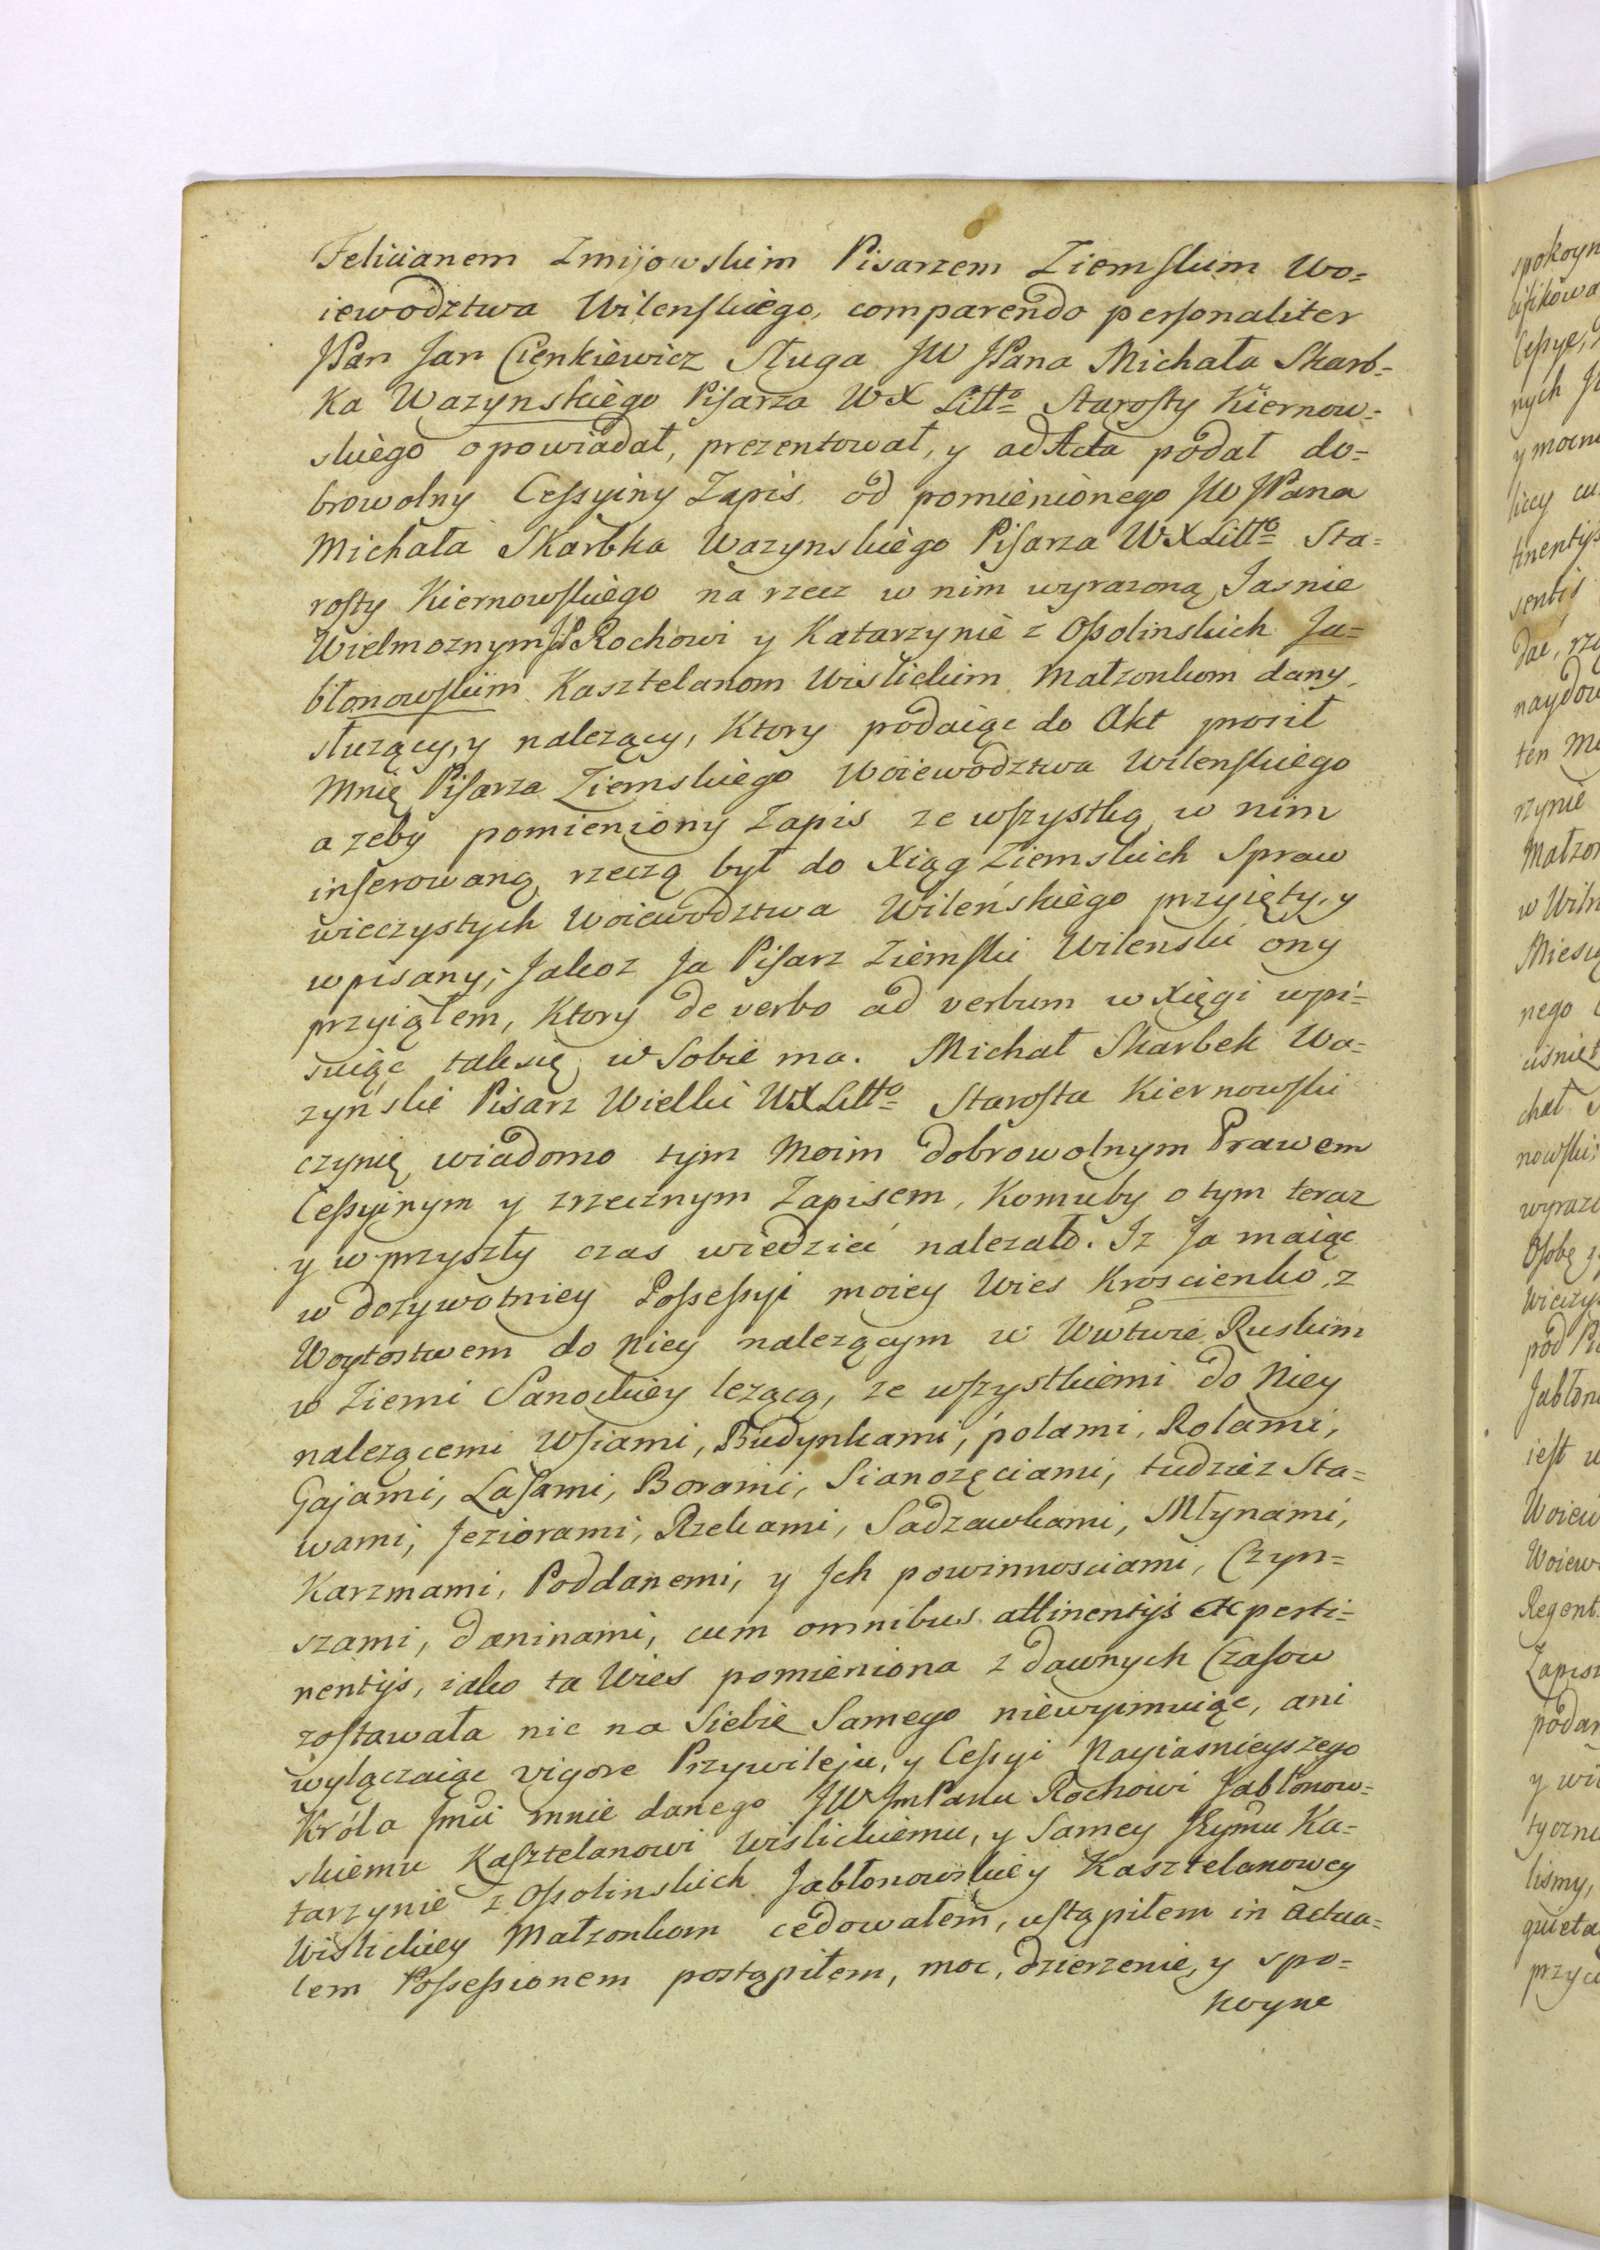 Felicianem Zmijowskim Pisarzem Ziemskim Wo=
iewodztwa Wilenskiego, comparendo personaliter
JPan Jan Cienkiewicz Sługa JW JPana Michała Skarb=
Ka Wazynskiego Pisarza WX Litto Starosty Kiernow=
skiego opowiadał, prezentował, y ad Acta podał do=
browolny Cessyiny Zapis od pomienionego JW JPana
Michała Skarbka Wazynskiego Pisarza WX Litto Sta=
rosty Kiernowskiego na rzecz w nim wyrazoną Jasnie
Wielmoznym JP Rochowi y Katarzynie z Ossolinskich Ja=
błonowskim Kasztelanom Wislickim Małzonkom dany,
służący, y nalezący, Ktory podaiąc do Akt prosił
Mnię Pisarza Ziemskiego Woiewodztwa Wilenskiego
a zeby pomieniony Zapis ze wszystką w nim
inserowaną rzeczą był do Xiąg Ziemskich Spraw
wieczystych Woiewodztwa Wileńskiego przyięty, y
wpisany; Jakoz Ja Pisarz Ziemski Wilenski ony
przyiąłem, Ktory de verbo ad verbum w Xięgi wpi=
suiąc tak się w Sobie ma. Michał Skarbek Wa=
zyński Pisarz Wielki WX Litto Starosta Kiernowski
czynię wiadomo tym Moim dobrowolnym Prawem
Cessyinym y zrzecznym Zapisem, Komuby o tym teraz
y w przyszły czas wiedzieć nalezało. Iz Ja maiąc
w dozywotniey Possessyi moiey Wies Kroscienko, z
Woytostwem do Niey nalezącym w Wwtwie Ruskim
w Ziemi Sanockiey lezącą, ze wszystkiemi do Niey
nalezącemi Wsiami, Budynkami, polami, Rolami,
Gajami, Lasami, Borami, Sianozęciami, tudziez Sta=
wami, Jeziorami, Rzekami, Sadzawkami, Młynami,
Karzmami, Poddanemi, y Jch powinnosciami, Czyn=
szami, daninami, cum omnibus attinentijs et perti=
nentijs, iako ta Wies pomieniona z dawnych Czasow
zostawała nic na Siebie Samego niewyimuiąc, ani
wyłączaiąc vigore Przywileju, y Cessyi Nayiasnieyszego
Króla Jmci mnie danego JW JmPanu Rochowi Jabłonow=
skiemu Kasztelanowi Wislickiemu, y Samey JEymci Ka=
tarzynie z Ossolinskich Jabłonowskiey Kasztelanowey
Wislickiey Małzonkom cedowałem, ustąpiłem in Actua=
lem Possessionem postąpiłem, moc, dzierzenie, y spo=
koyne